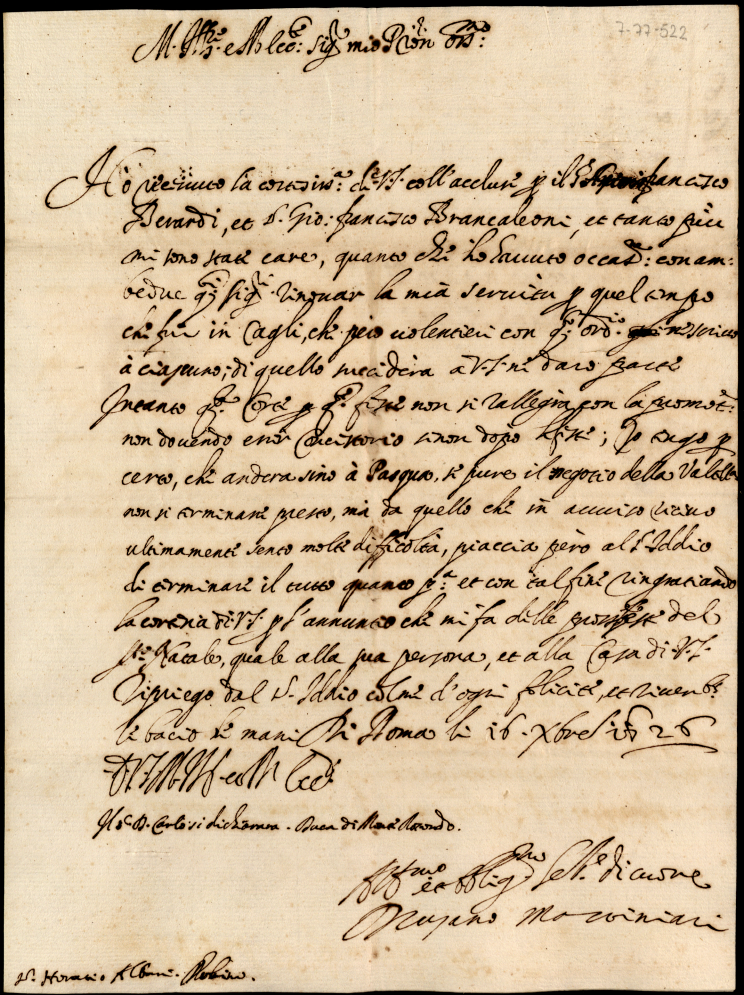 7-77-522
M. Ill.re e Molto sig.r mio P.ron oss.mo
Hò riceuuto la cortesiss.a di V.S. coll'accluse p il francisco
Berardi, et S. Gio: francisco Brancaleoni, et tanto più
mi sono state care, quanto che ho hauuto occas.e: con am:
bedue q.i sig.ri rinouar la mia seruitù p quel tempo
che fui in Cagli, che però uolentieri con q.o ord.o n'scriuo
à ciascuno; di quello succederà a V.S. ne darò parte
Intanto q.a Corte p q.e feste non si rallegra con la promot.e:
non douendo esser Concistorio sinon dopo le feste; Io tengo p
certo, che andera sino à Pasqua, se pure il negotio della Valtell.
non si terminasse presto, mà da quello che in auuiso
ultimamente sento molte difficoltà, piaccia però al S. Iddio
di terminare il tutto quanto p.a et con tal fine ringratiando
la cortesia di V.S. p l'annuntio che mi fa delle feste del
S.mo Natale, quale alla sua persona, et alla Casa di V.S.
riprego dal S. Iddio colme d'ogni felicità, et riuerent.e
le bacio le mani Di Roma li 16. Xbre 1626
Di V.S. M. Ill. e Molto
Il S. D. Carlo si dichiara. Duca di Monte Rotondo.
Aff.mo et obblig.mo Se.re di cuore
S. Horatio Albani. Urbino.